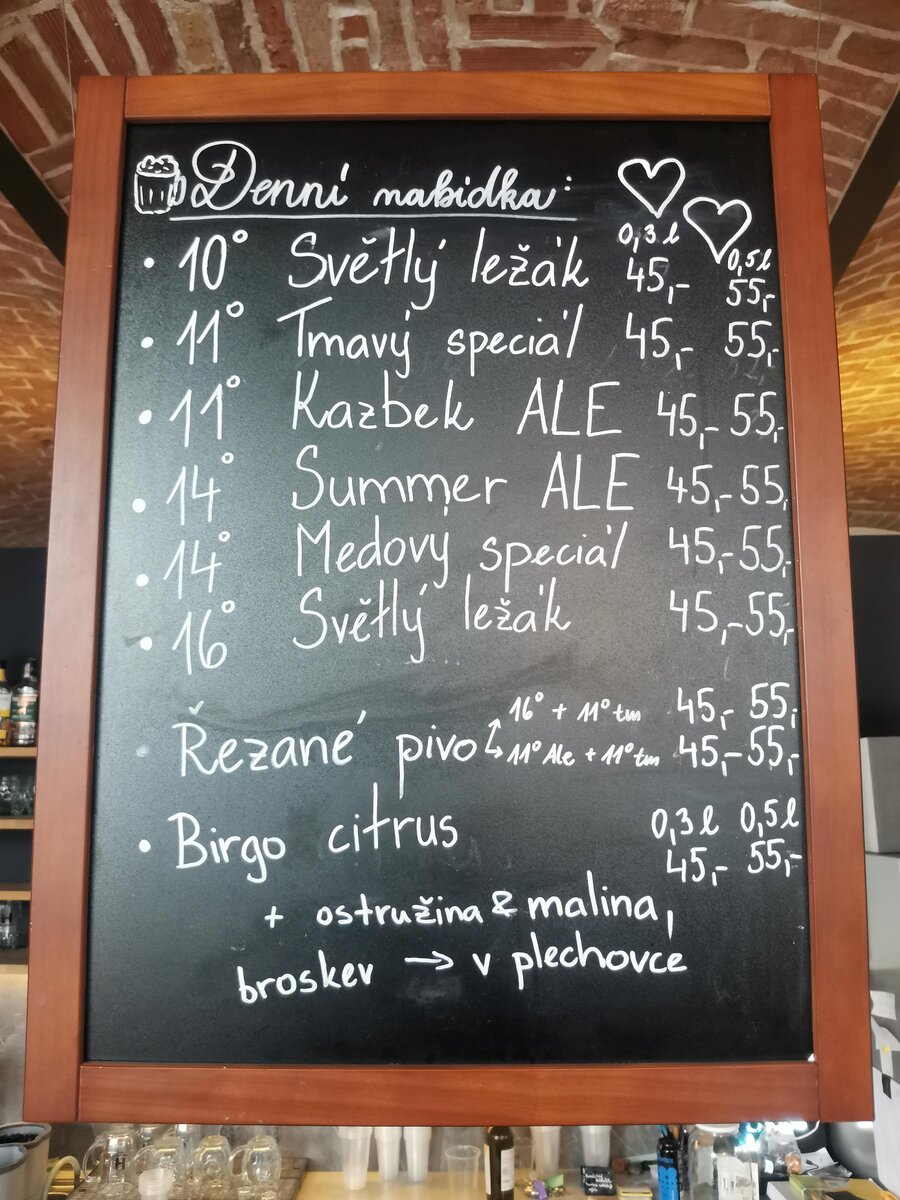 Denní nabídka:
0,3 l 0,5 l
• 10° Světlý ležák 45,- 55,-
• 11° Tmavý speciál 45,- 55,-
• 11° Kazbek ALE 45,- 55,-
• 14° Summer ALE 45,- 55,-
• 14° Medový speciál 45,- 55,-
• 16° Světlý ležák 45,- 55,-
16° + 11° tm 45,- 55,-
• Řezané pivo
11° Ale + 11° tm 45,- 55,-
0,3 l 0,5 l
• Birgo citrus 45,- 55,-
+ ostružina & malina,
broskev → v plechovce